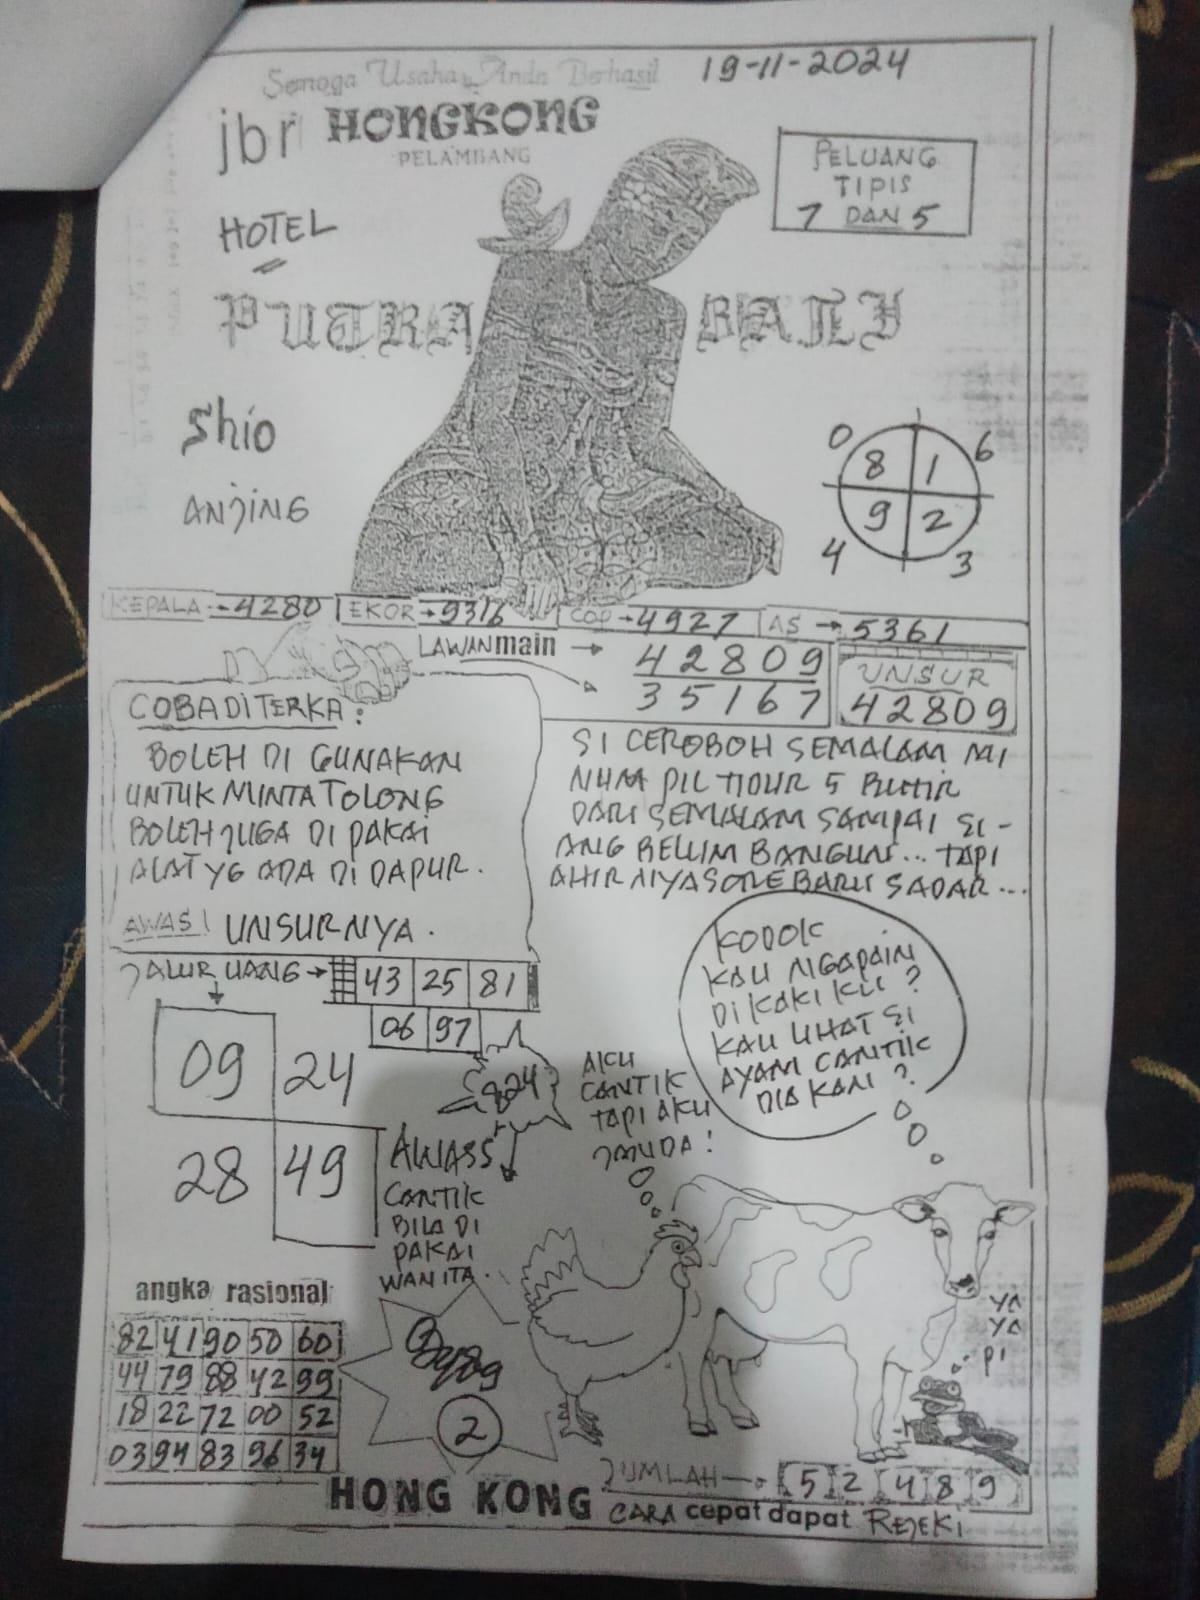 Semoga Usaha Anda Berhasil
19-11-2024
jbr HONGKONG
PELAMBANG
PELUANG
TIPIS
7 DAN 5
HOTEL
PUTRA BALI
Shio
ANJING
0 6
8 1
9 2
4 3
KEPALA → 4280 EKOR → 9316 COP → 4927 AS → 5361
LAWAN main → 42809
35167
UNSUR
42809
COBA DITERKA:
BOLEH DI GUNAKAN
UNTUK MINTA TOLONG
BOLEH JUGA DI PAKAI
ALAT YG ADA DI DAPUR.
AWAS! UNSURNYA.
SI CEROBOH SEMALAM MI
NUM PIL TIDUR 5 BUTIR
DARI SEMALAM SAMPAI SI-
ANG BELUM BANGUN... TAPI
AHIRNIYA SORE BARU SADAR...
JALUR UANG → 43 25 81
06 97
09 24
28 49
824
AWASS
CANTIK
BILA DI
PAKAI
WANITA.
AKU
CANTIK
TAPI AKU
JANDA!
KODOK
KAU NGAPAIN
DI KAKI KU?
KAU LIHAT SI
AYAM CANTIK
DIA KAN?
YA
YA
PI
angka rasional
82 41 90 50 60
44 79 88 42 99
18 22 72 00 52
03 94 83 96 34
2
JUMLAH → 5 2 4 8 9
HONG KONG CARA cepat dapat REJEKI